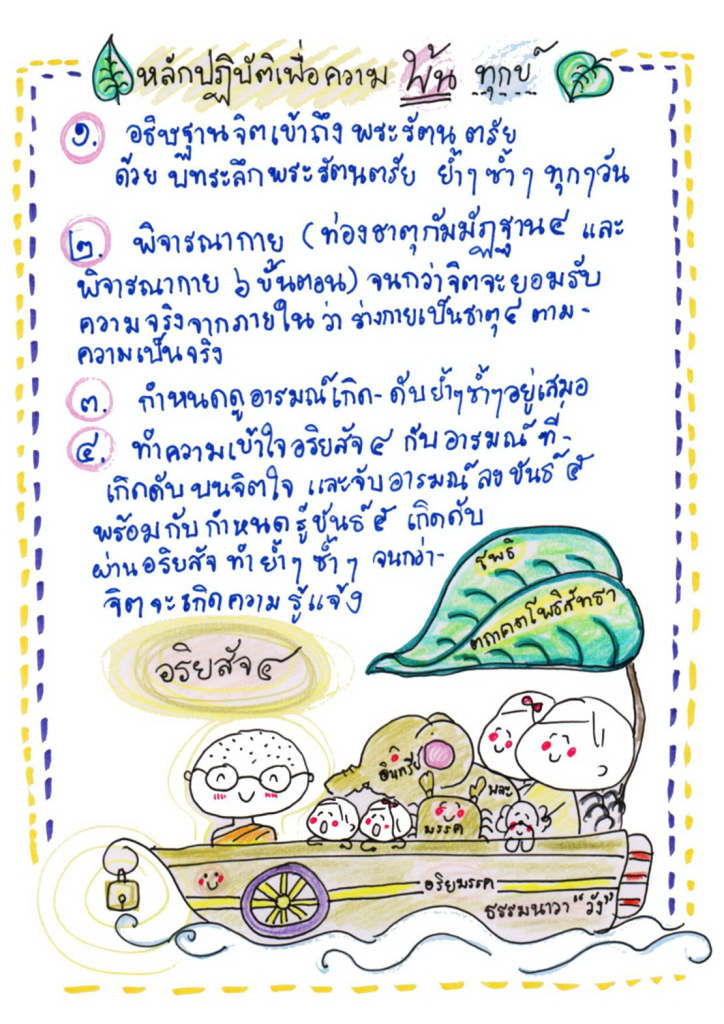 หลักปฏิบัติเพื่อความ พ้น ทุกข์
๑. อธิษฐานจิตเข้าถึง พระรัตนตรัย
ด้วย บทระลึกพระรัตนตรัย ย้ำๆ ซ้ำๆ ทุกๆวัน
๒. พิจารณากาย (ท่องธาตุกัมมัฏฐาน ๔ และ
พิจารณากาย ๖ ขั้นตอน) จนกว่าจิตจะยอมรับ
ความจริงจากภายใน ว่า ร่างกายเป็นธาตุ ๔ ตาม-
ความเป็นจริง
๓. กำหนดดูอารมณ์เกิด-ดับย้ำๆซ้ำๆอยู่เสมอ
๔. ทำความเข้าใจอริยสัจ ๔ กับอารมณ์ ที่-
เกิดดับ บนจิตใจ และจับอารมณ์ลงขันธ์ ๕
พร้อมกับกำหนดรู้ขันธ์ ๕ เกิดดับ
ผ่านอริยสัจ ทำย้ำๆ ซ้ำๆ จนกว่า-
จิตจะเกิดความรู้แจ้ง
โพธิ
ตถาคตโพธิสัทธา
อริยสัจ ๔
อินทรีย์
พละ
มรรค
อริยมรรค
ธรรมนาวา "วัง"